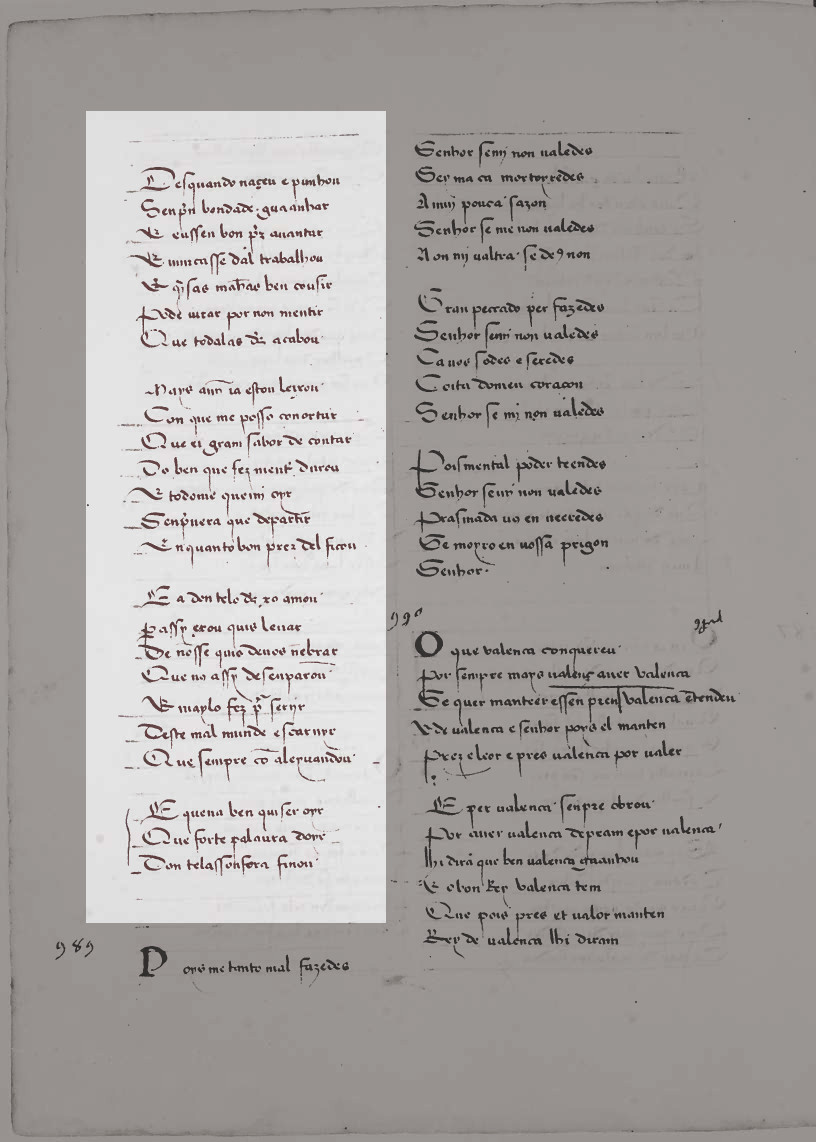 Desquando naçeu e punhou
Senpʳn bondade guaanhar
E eussen bon pʳz auantar
E nuncasse dal trabalhou
E qʳ sas mañas ben cousir
Pode iurar por non mentir
Que todalas dʳz acabou
Mays ainda estou
Con que me posso conortar
Que ei gram sabor de contar
Do ben que fez mentʳ durou
E todome queiri oyr
Senpʳuera que departir
Enquanto bon prez del ficou
E a don telo dʳz xo amou
Passy xrou quis leuar
De nosse quis deuos nebrar
Que no assy desenparou
E maylo fez pʳ seruir
Deste mal mundo escarnyr
Que sempre co aleyuandou
E quena ben quiser oyr
Que forte palaura doyr
Don telassonsora finou
989
Poys me tanto mal fazedes
Senhor semj non ualedes
Sey ma ca mortorredes
A muj pouca sazon
Senhor se me non ualedes
Non mj ualtra se deꝯ non
Gran peccado per fazedes
Senhor semj non ualedes
Ca uos sodes e seredes
Coita domeu coraçon
Senhor se mj non ualedes
Poismental poder teendes
Senhor semj non ualedes
Prasmada uo en ueeredes
Se moyro en uossa prigon
Senhor
990
O que valenca conquereu
Por sempre mays ualenç auer valenca
Se quer manteer essen pren valenca entendeu
E de valenca e senhor poys el manten
Prez e leor e pres ualença por ualer
E per ualenca senpre obrou
Por auer ualenca depram epor ualenca
lhi dirã que ben ualenca guaanhou
E o bon Rey valenca tem
Que pois pres et ualor manten
Rey de ualenca lhi diram